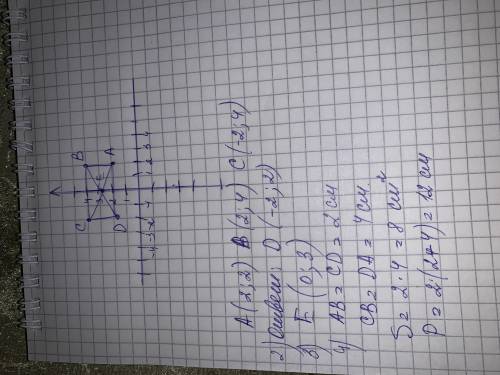 C B
4
3 E
D 2 A
1
-4 -3 -2 -1 1 2 3 4
A(2;2) B(2;4) C(-2;4)
2) Ответ: D (-2;2)
3) E (0;3)
4) AB = CD = 2 см
CB = DA = 4 см
S = 2·4 = 8 см²
P = 2·(2+4) = 12 см